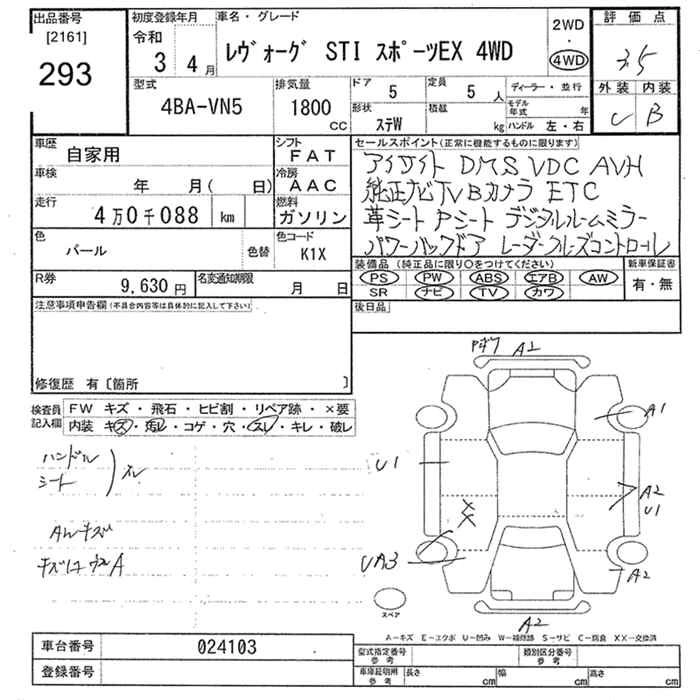 出品番号
[2161]
293
初度登録年月
令和
3 年 4 月
車名・グレード
ﾚヴｫｰグ STI ｽポｰﾂEX 4WD
2WD
・
4WD
評価点
3.5
外装 内装
C B
型式
4BA-VN5
排気量
1800 CC
ドア 5
定員 5 人
ディーラー・並行
形状 ｽﾃW
積載 kg
モデル年式 年
ハンドル 左・右
車歴 自家用
シフト FAT
車検 年 月( 日)
冷房 AAC
走行 4万0千088 km
燃料 ガソリン
色 パール 色替
色コード K1X
R券 9,630円
名変通知期限 月 日
セールスポイント(正常に機能するものに限ります)
アイサイト DMS VDC AVH
純正ナビTVBカメラ ETC
革シート Pシート デジタルルームミラー
パワーバックドア レーダークルーズコントロール
装備品 (純正品に限り○をつけてください)
新車保証書
PS PW ABS エアB AW
SR ナビ TV カワ
有・無
注意事項申告欄(不具合内容等は具体的に記入して下さい)
後日品
修復歴 有〔箇所 〕
検査員記入欄
FW キズ・飛石・ヒビ割・リペア跡・×要
内装 キズ・汚レ・コゲ・穴・スレ・キレ・破レ
ハンドル
シート
スレ
Aムキズ
A1
A1
U1
A2
U1
XX
UA3
A2
スペア
A2
A-キズ E-エクボ U-凹み W-補修跡 S-サビ C-腐食 XX-交換済
車台番号 024103
登録番号
型式指定番号 参考
類別区分番号 参考
車庫証明用 参考
長さ cm
幅 cm
高さ cm